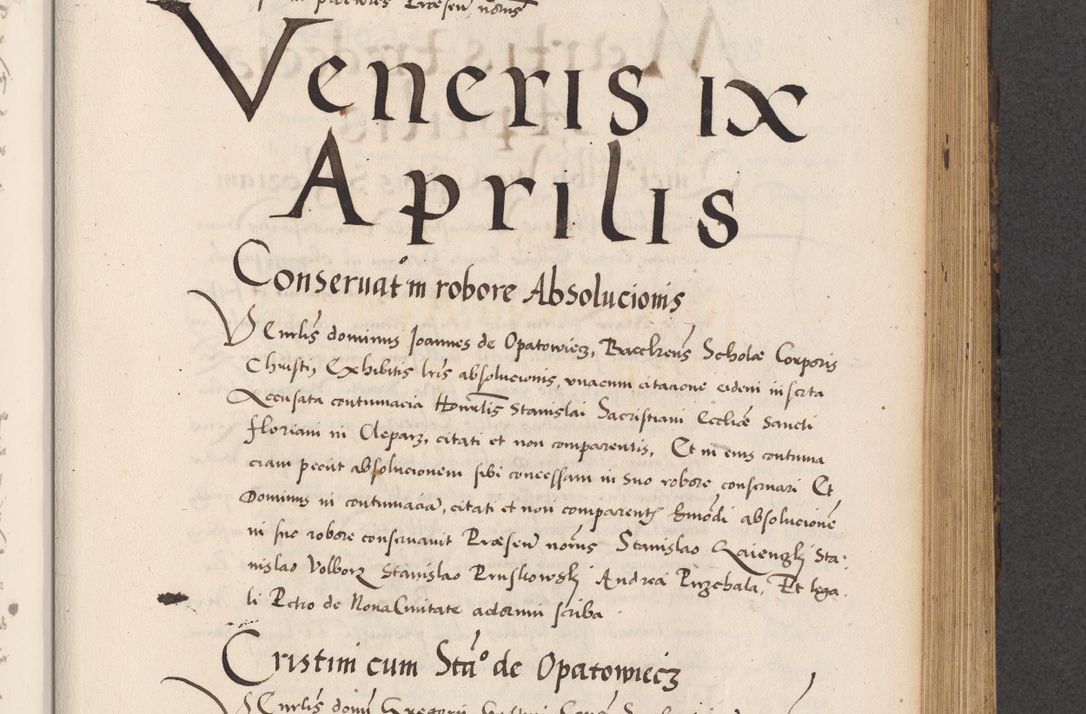 Presen notrs
Veneris ix
Aprilis
Conseruatº in robore Absolucionis
Venrlis dominus Joannes de Opatowiecz, Baccheus Scholæ Corporis
Christi, Exhibitis lris absolucionis, vnacum citacione eidem inserta
Accusata contumacia Honrlis Stanislai Sacristiani Eccliæ Sancti
floriani in Clepar, citati et non comparentis, Et in eius contuma
ciam peciit absolucionem sibi concessam in suo robore conseruari Et
Dominus in contumaciã, citati et non comparentis hmõdi absolucionẽ
in suo robore conseruauit Præsen notrs Stanislao Sta-
nislao Volborz Stanislao Pruskowski Andrea Et lega-
li Petro de Noua Ciuitate actorum scriba
Cristini cum Staº de Opatowiecz
Venrlis doms Gregorius